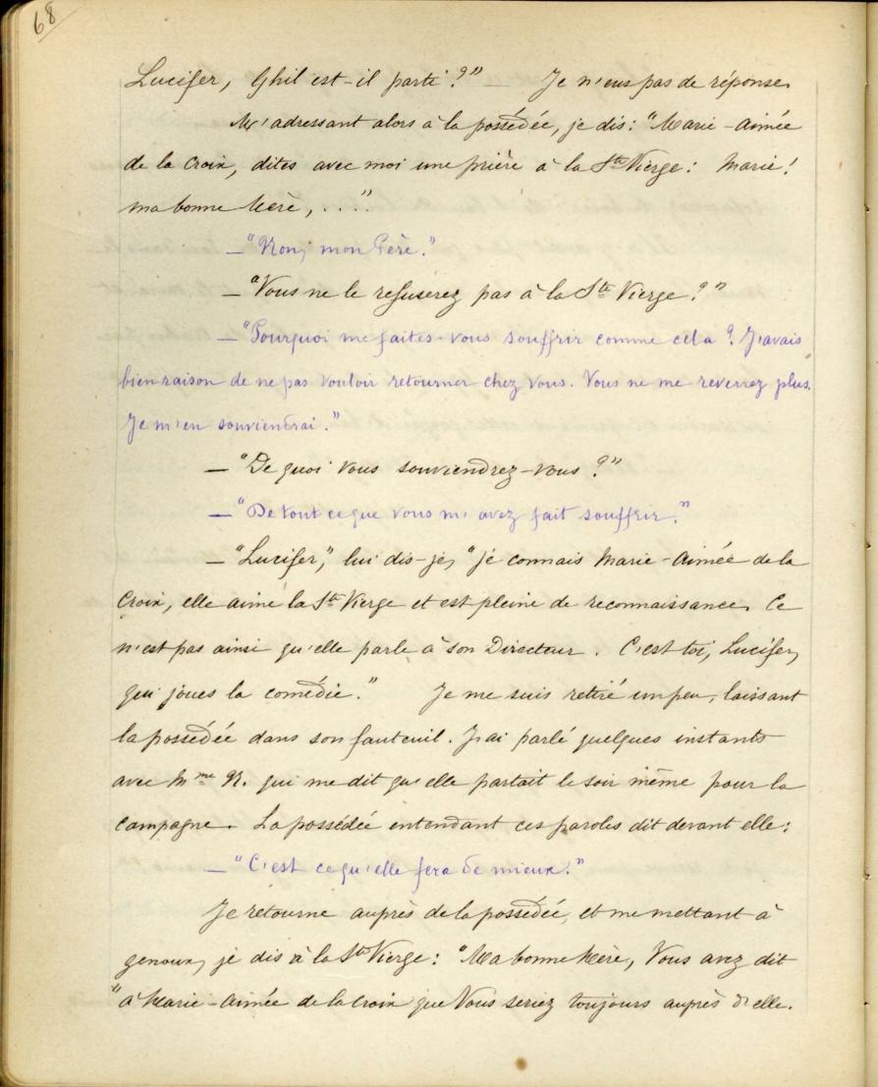 68
Lucifer, Ghil est-il parti ?" — Je n'eus pas de réponse.
M'adressant alors à la possédée, je dis : "Marie-Aimée
de la Croix, dites avec moi une prière à la Ste Vierge : Marie !
ma bonne Mère, ..."
— "Non, mon Père."
— "Vous ne le refuserez pas à la Ste Vierge ?"
— "Pourquoi me faites-vous souffrir comme cela ? J'avais
bien raison de ne pas vouloir retourner chez vous. Vous ne me reverrez plus.
Je m'en souviendrai."
— "De quoi vous souviendrez-vous ?"
— "De tout ce que vous m'avez fait souffrir."
— "Lucifer," lui dis-je, "je connais Marie-Aimée de la
Croix, elle aime la Ste Vierge et est pleine de reconnaissance. Ce
n'est pas ainsi qu'elle parle à son Directeur. C'est toi, Lucifer,
qui joues la comédie." Je me suis retiré un peu, laissant
la possédée dans son fauteuil. J'ai parlé quelques instants
avec Mme N. qui me dit qu'elle partait le soir même pour la
campagne. La possédée entendant ces paroles dit devant elle :
— "C'est ce qu'elle fera de mieux."
Je retourne auprès de la possédée, et me mettant à
genoux, je dis à la Ste Vierge : "Ma bonne Mère, Vous avez dit
"à Marie-Aimée de la Croix que Vous seriez toujours auprès d'elle.